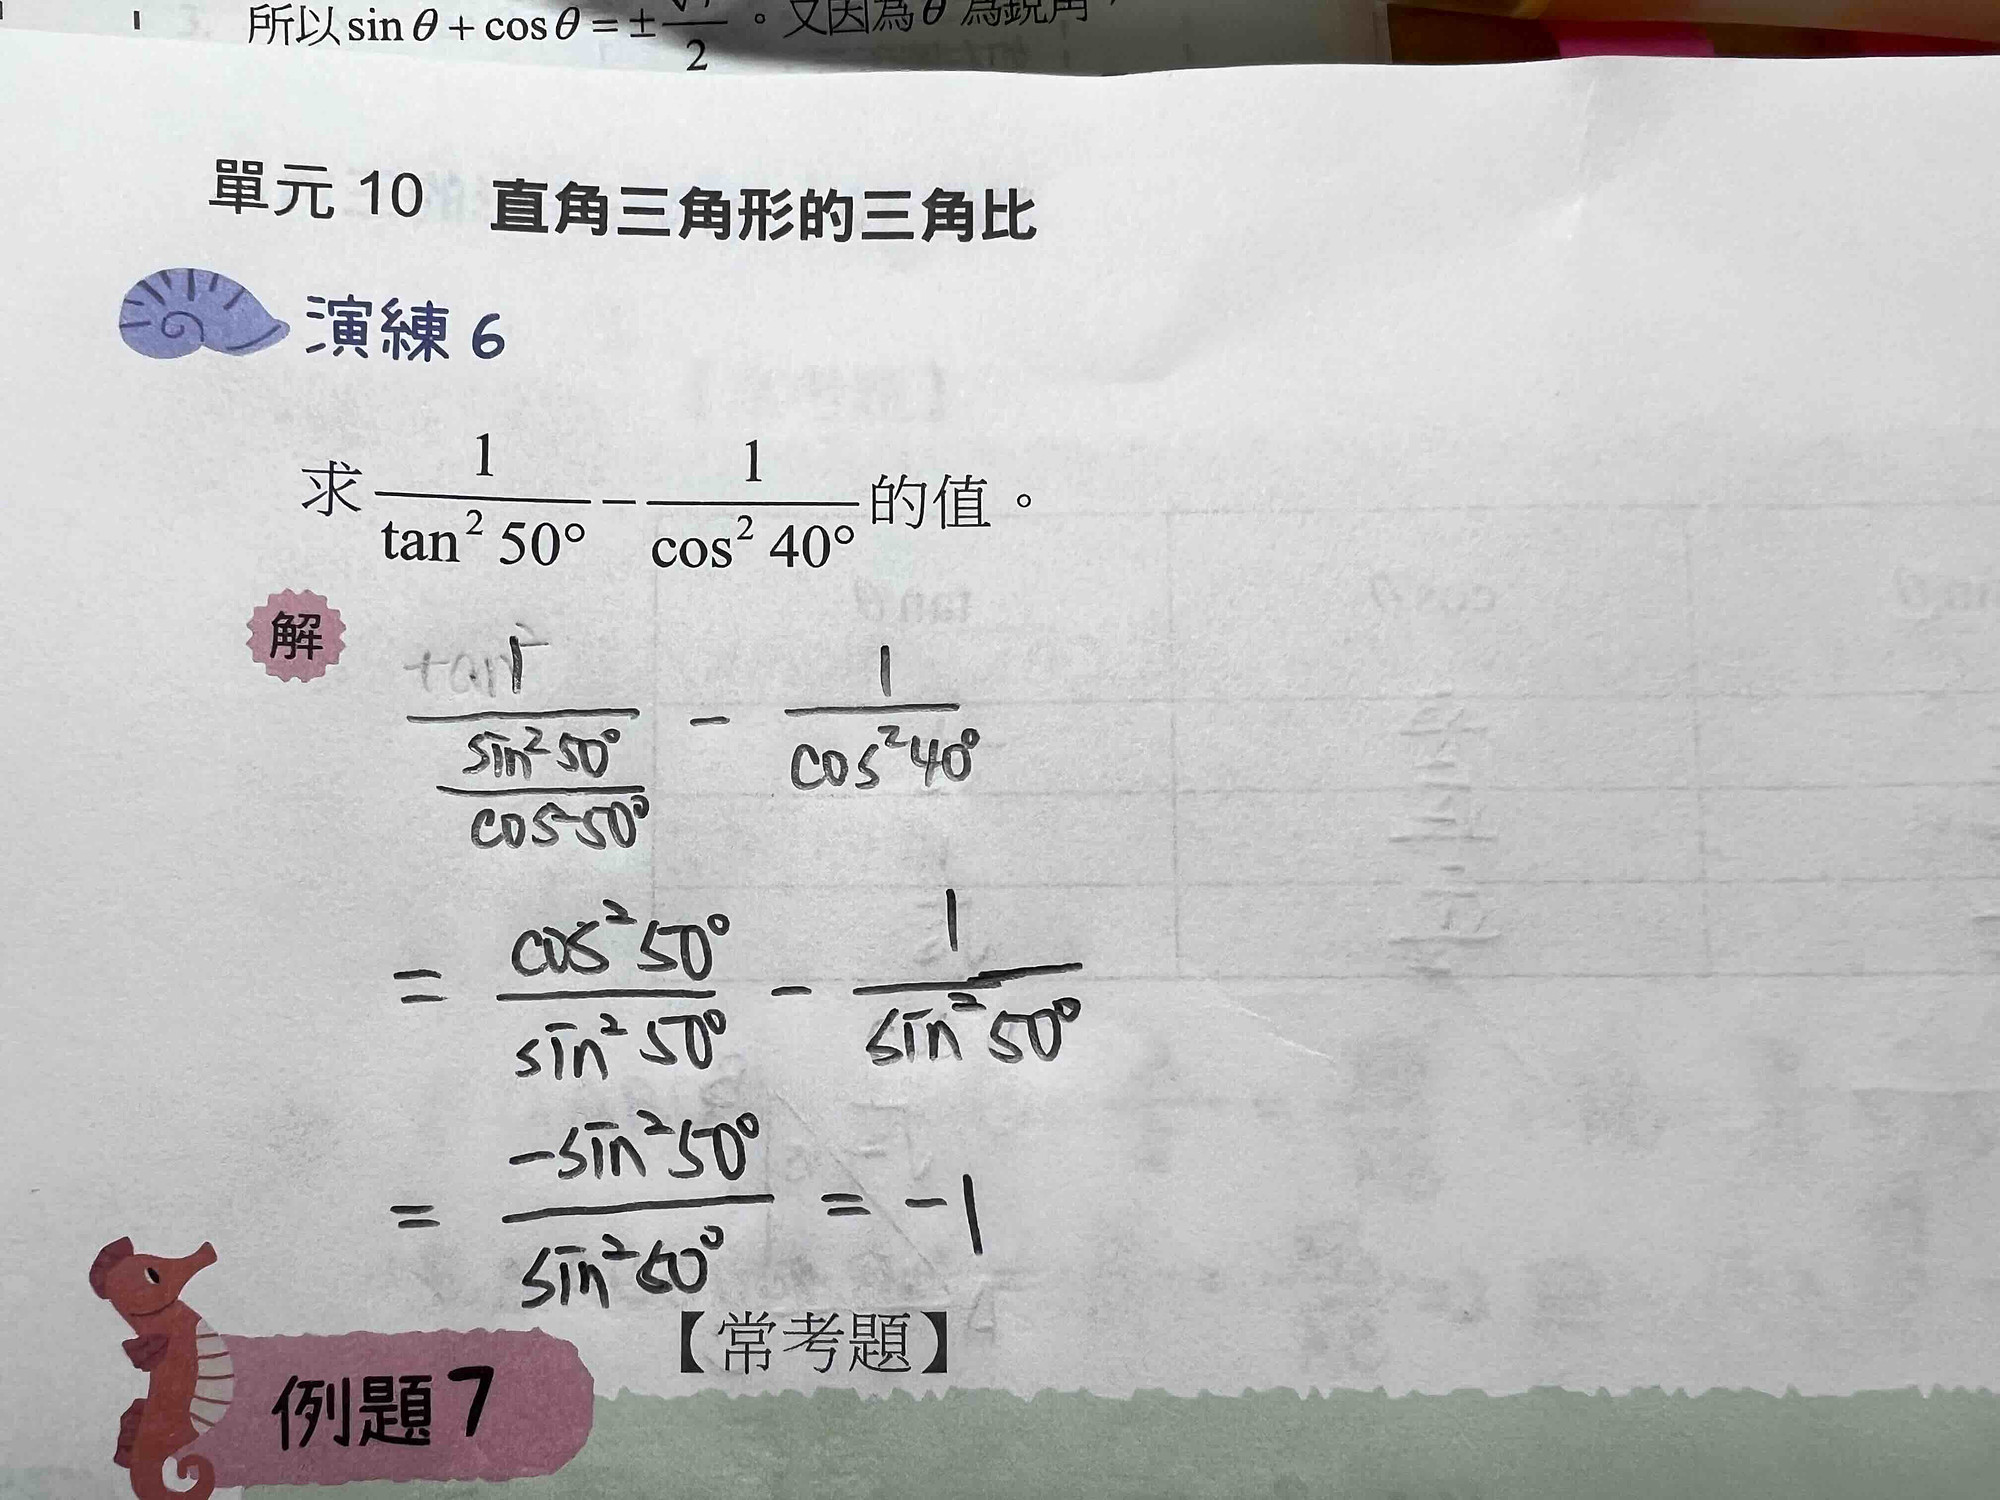 所以 sin θ + cos θ = ± √7/2 。又因為 θ 為銳角，
單元 10 直角三角形的三角比
演練 6
求 1/tan² 50° − 1/cos² 40° 的值。
解
1/(sin²50°/cos²50°) − 1/cos²40°
= cos²50°/sin²50° − 1/sin²50°
= −sin²50°/sin²50° = −1
【常考題】
例題 7